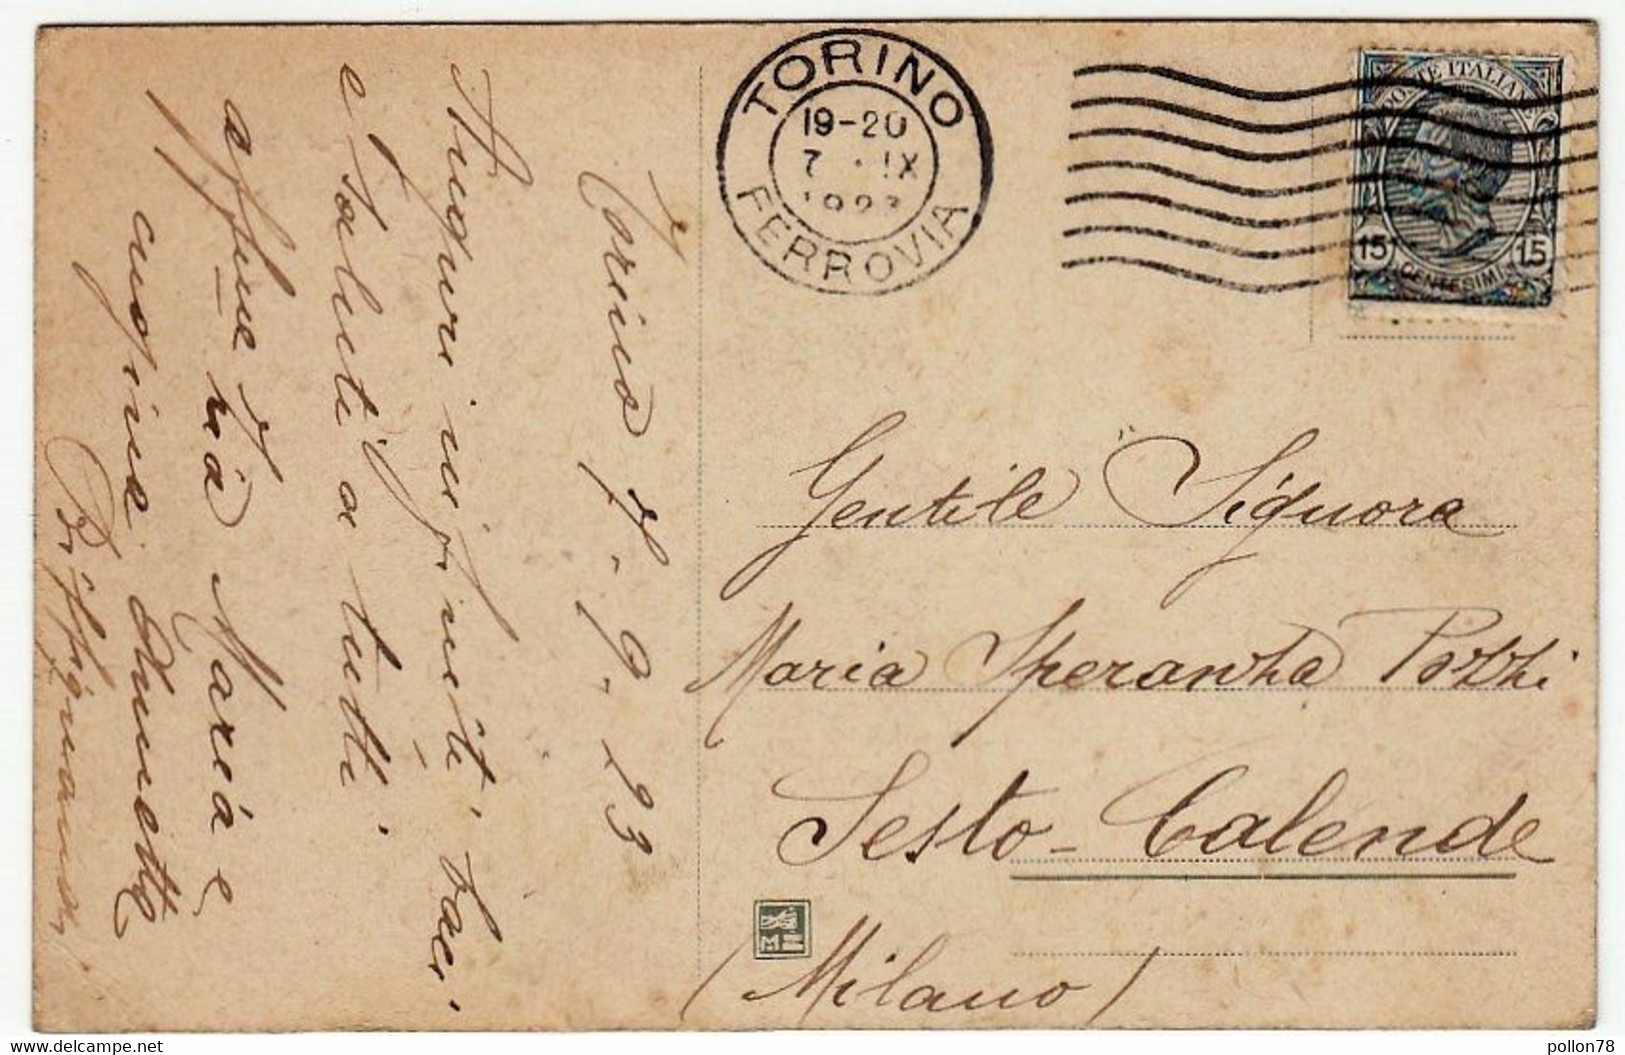 TORINO
19-20
7 · IX
1923
FERROVIA
POSTE ITALIANE
15 15
CENTESIMI
Torino 7-9-23
Auguri infiniti, baci
e saluti a tutti.
Maria e
cugina
Gentile Signora
Maria Speranza Pozzi
Sesto-Calende
(Milano)
www.delcampe.net
pollon78